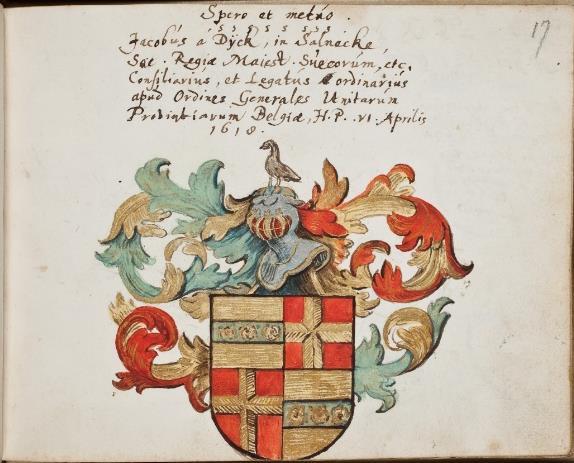 Spero et metúo.
17
Jacobús à Dÿck, in Salnecke,
Sac. Regiæ Maiest. Súecorum, etc.
Consiliariús, et Legatús ordinariús
apúd Ordines Generales Unitarúm
Provintiarum Belgiæ, H.P. .VI. Aprilis
1618.